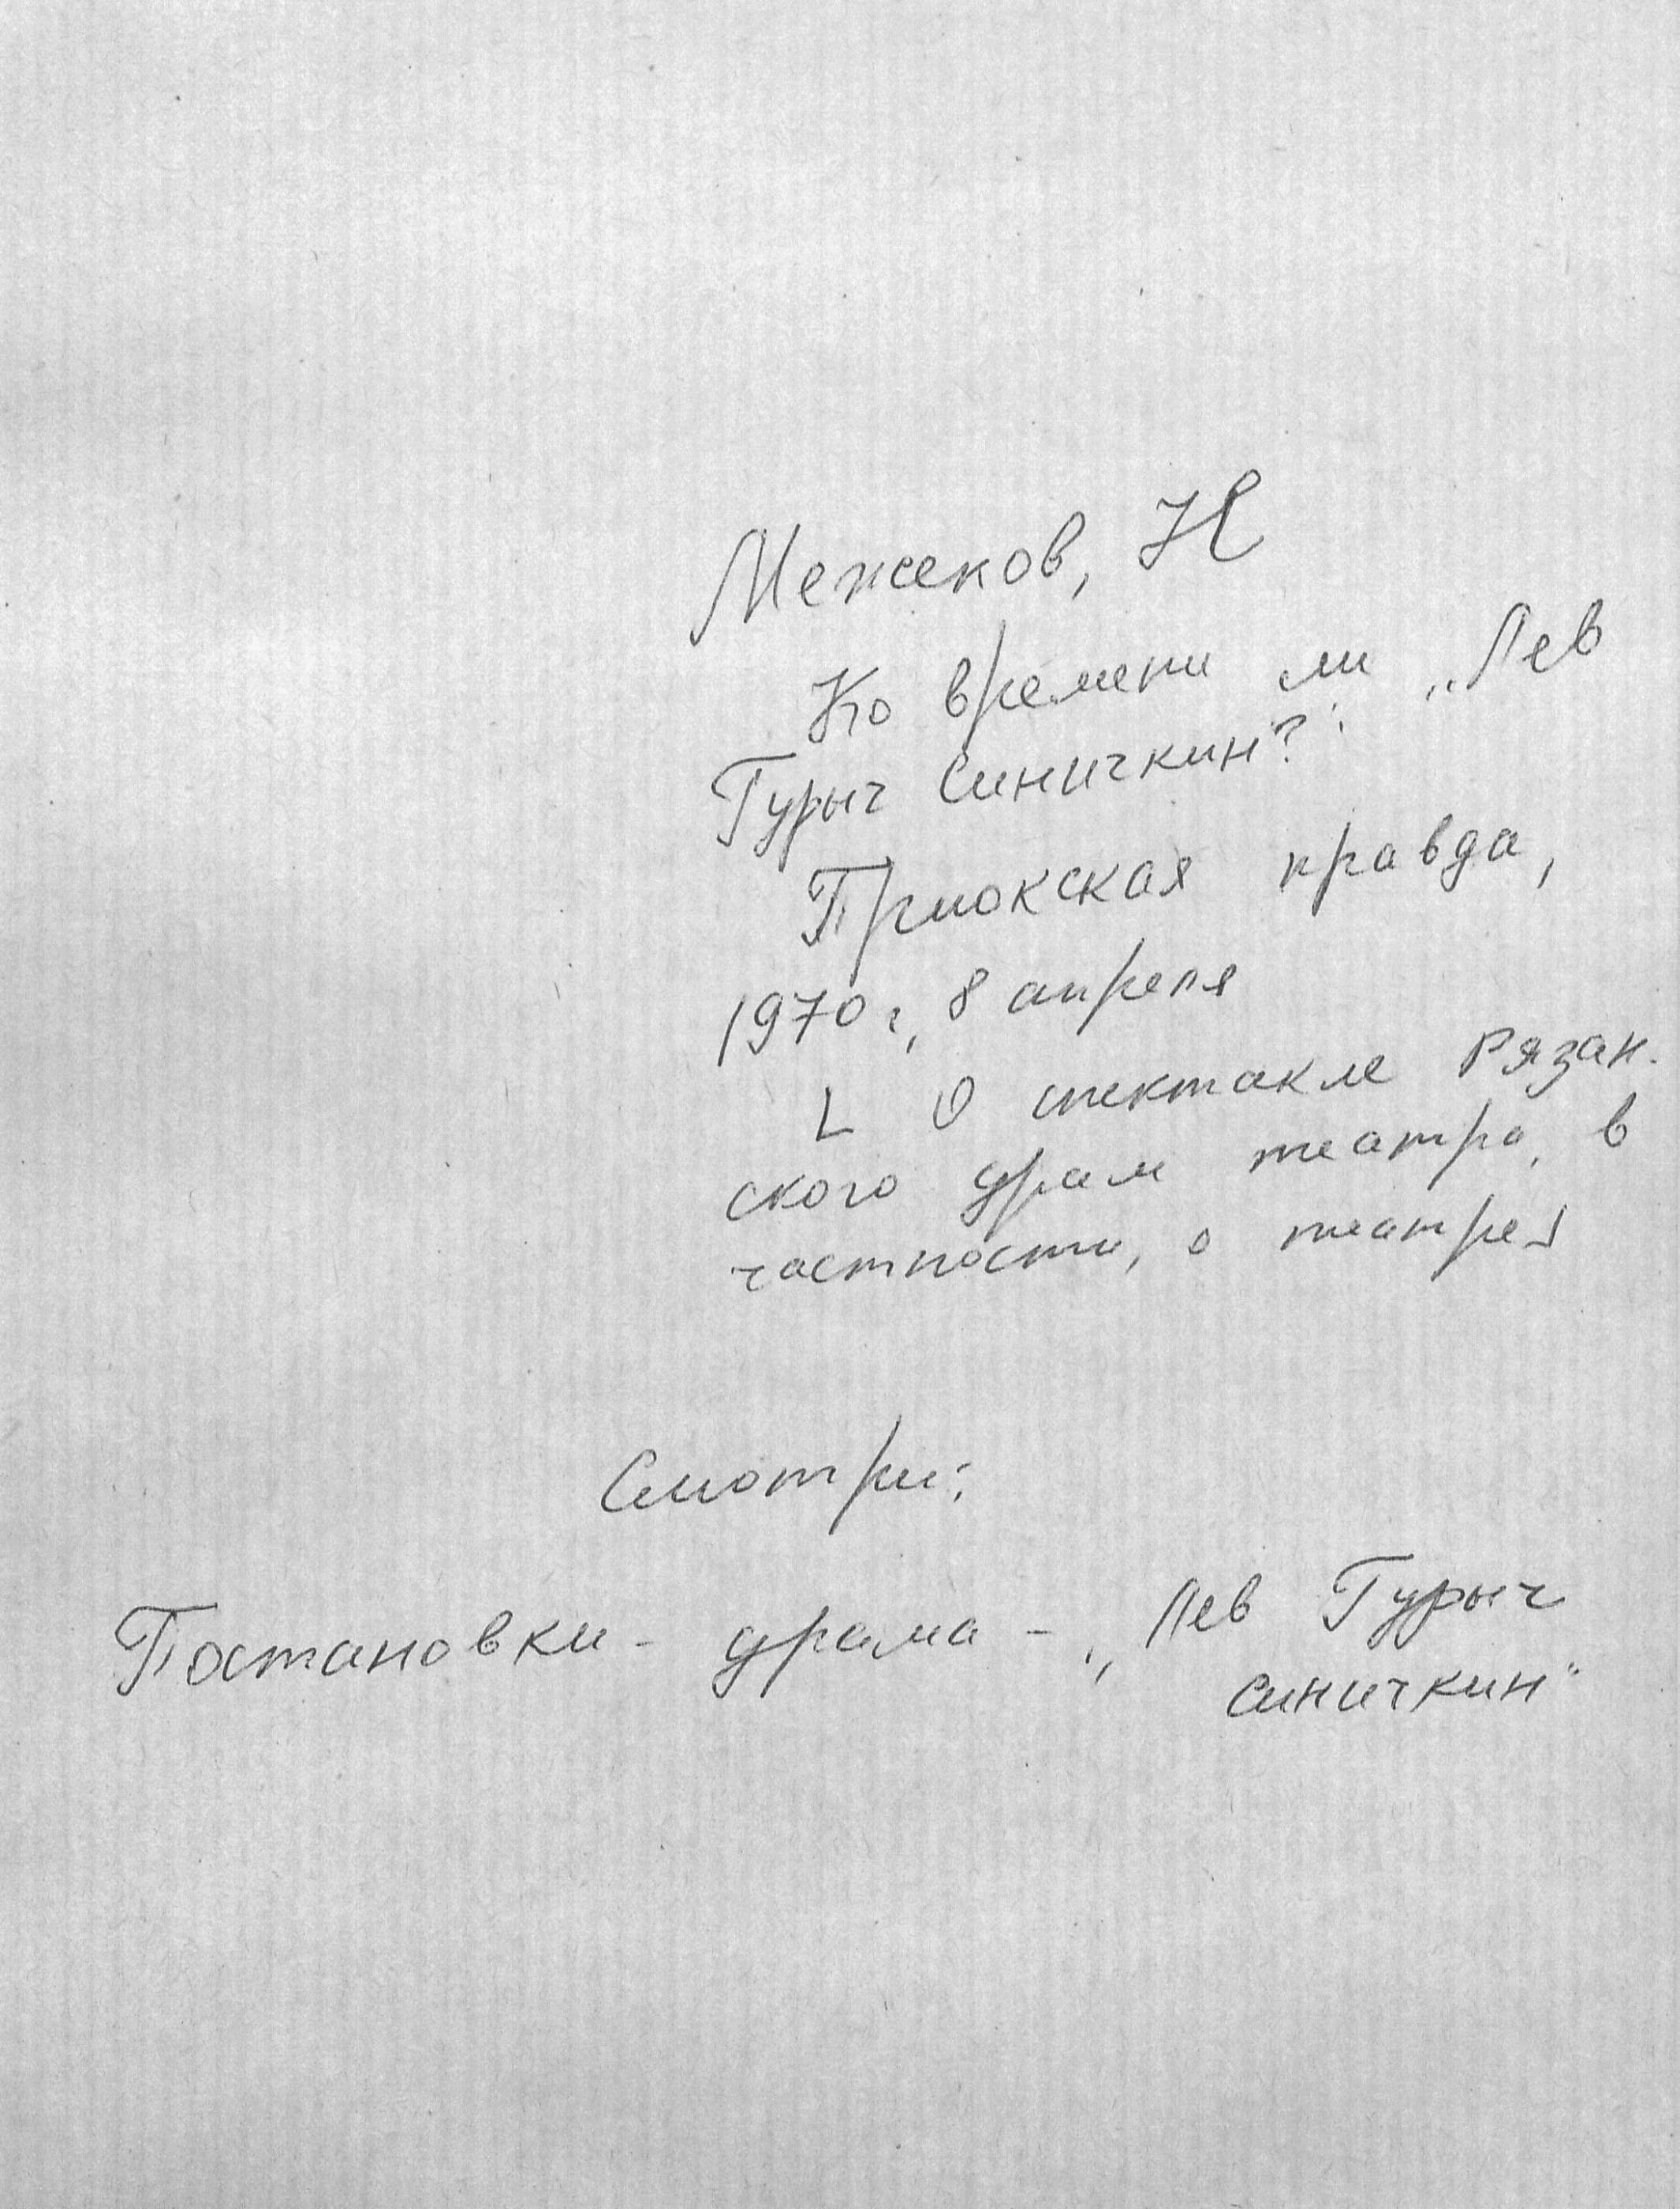 Межеков, Н
Ко времени ли „Лев
Гурыч Синичкин?“
Приокская правда,
1970 г., 8 апреля
[ О спектакле Рязан-
ского драм театра, в
частности, о театре]
Смотри:
Постановки - драма - „Лев Гурыч
Синичкин“